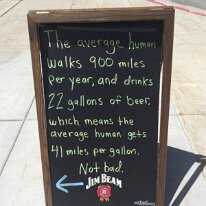 The average human
walks 900 miles
per year, and drinks
22 gallons of beer,
which means the
average human gets
41 miles per gallon.
Not bad.
JIM BEAM